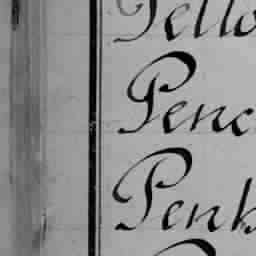 Pello
Penc
Penk